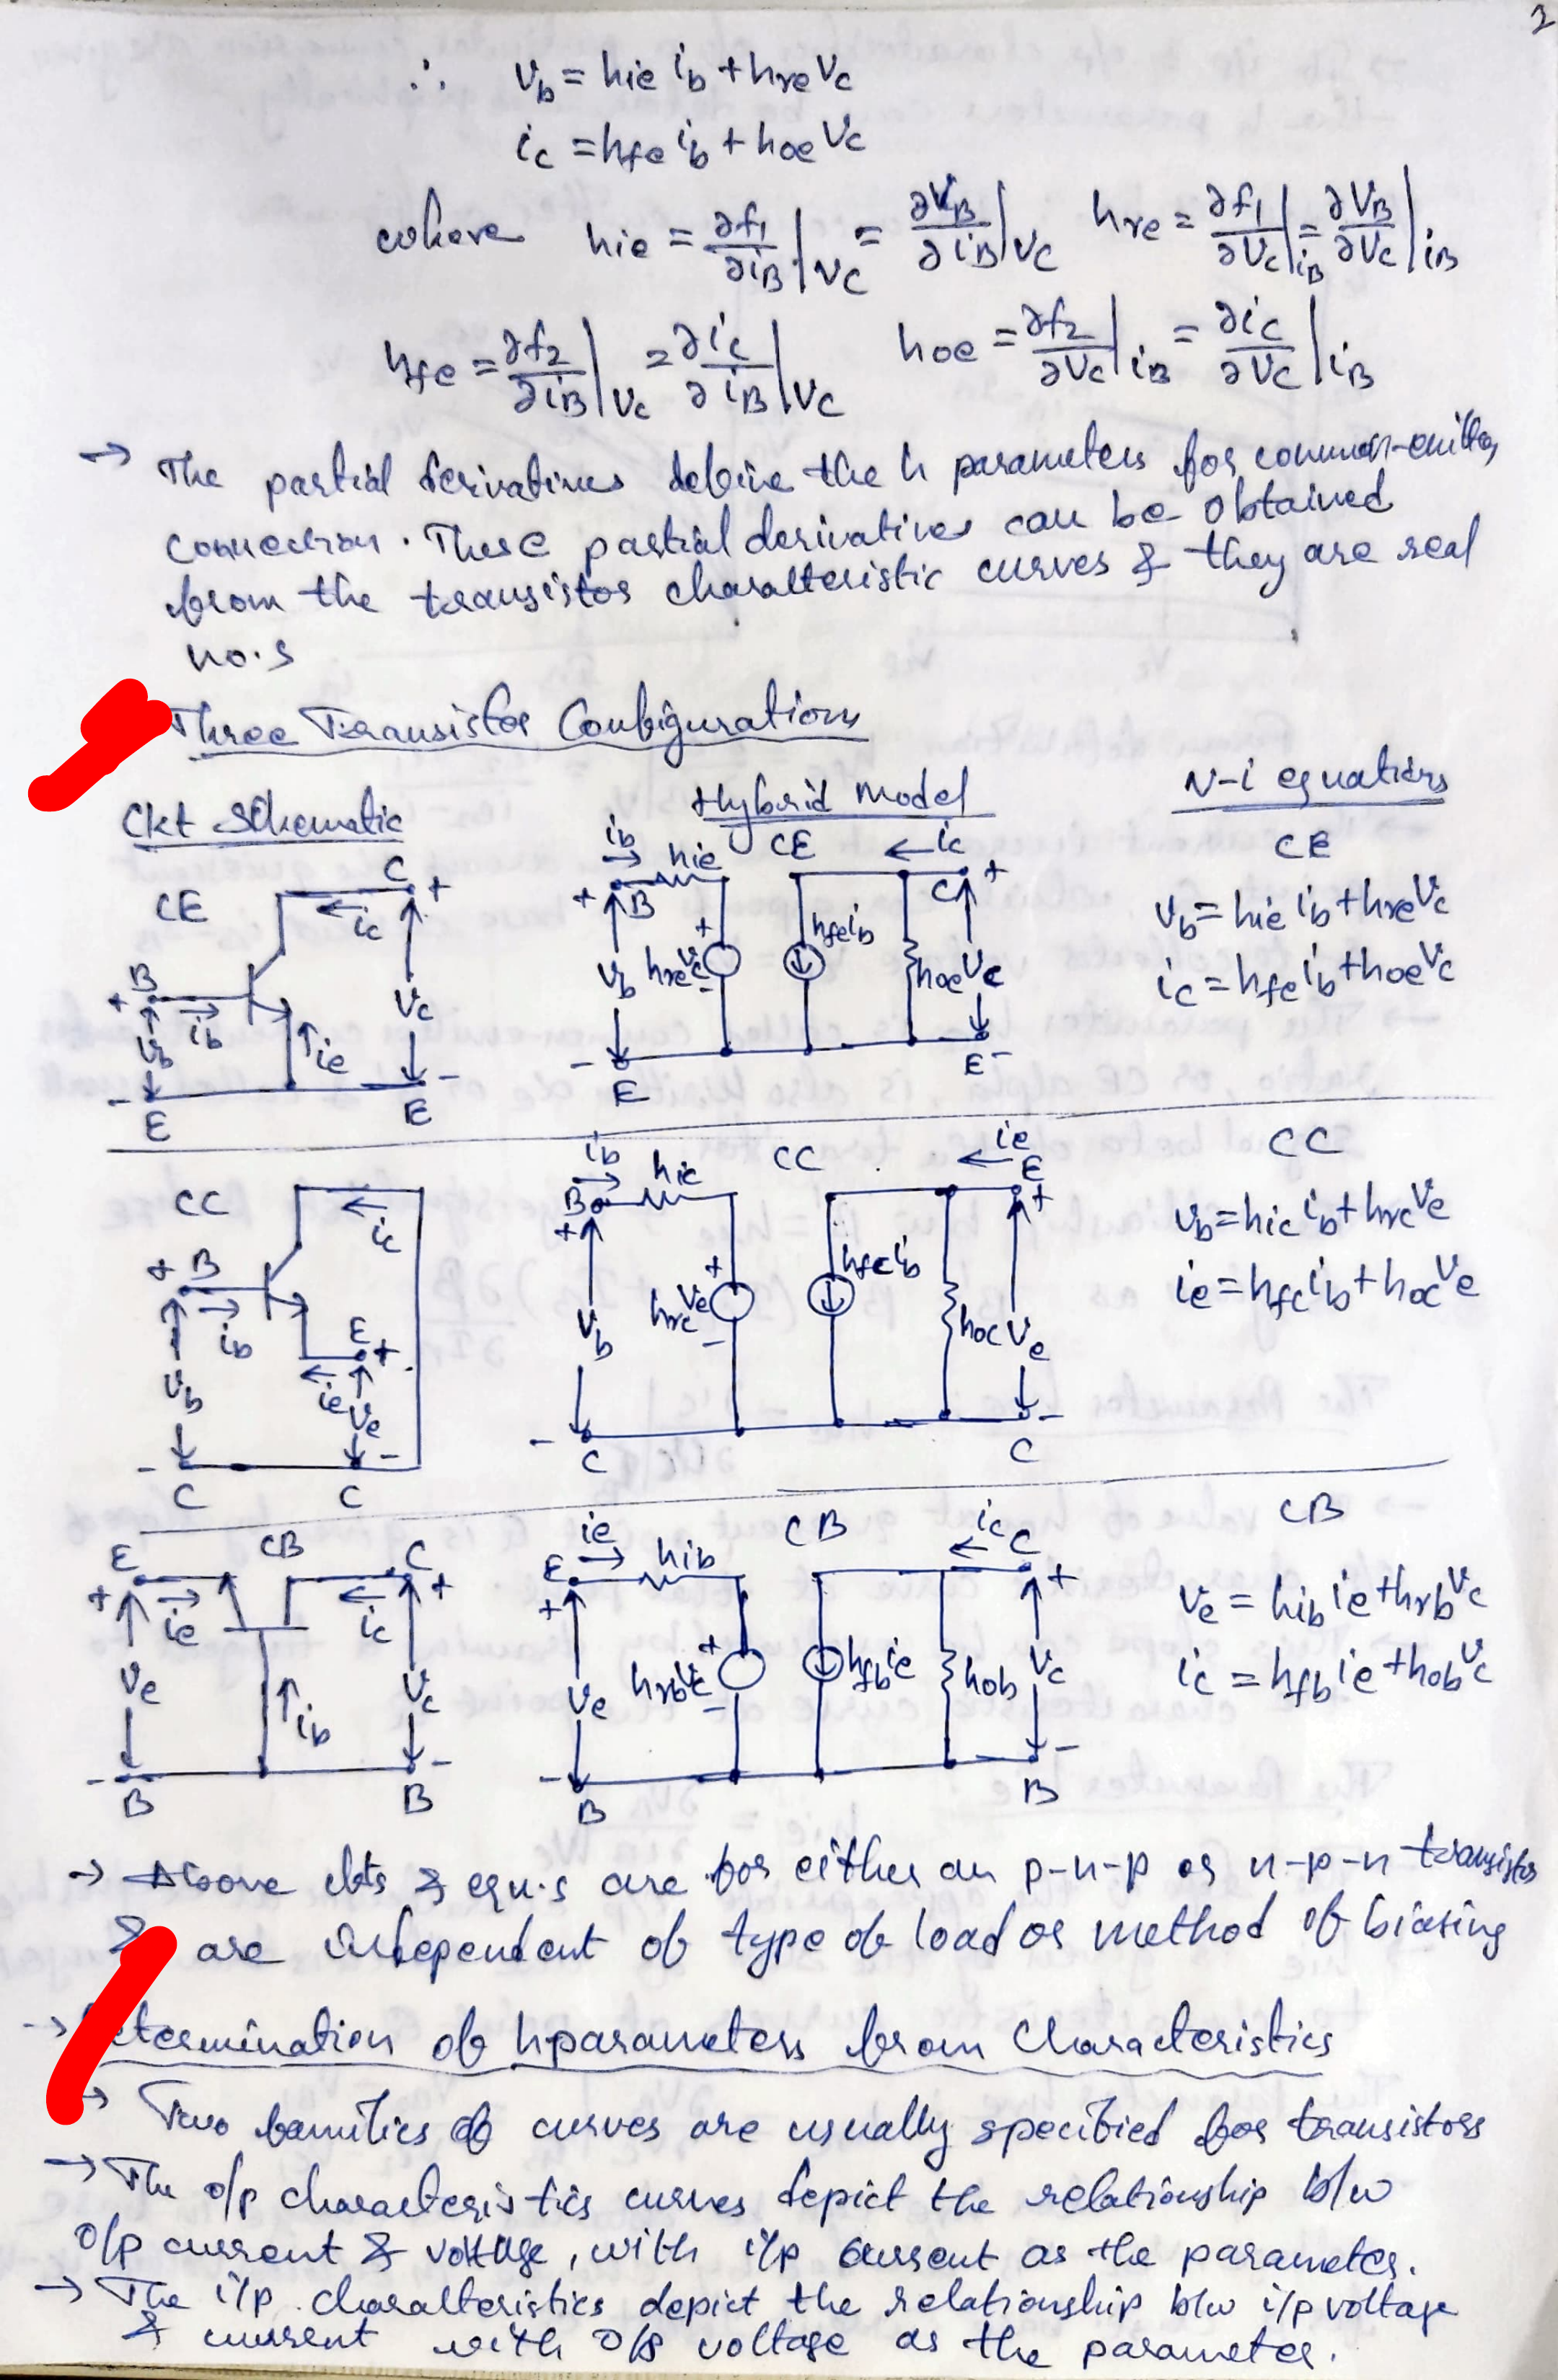 2
∴ v_b = hie i_b + hre v_c
i_c = hfe i_b + hoe v_c
where hie = ∂f₁/∂i_B |v_C = ∂V_B/∂i_B |v_C hre = ∂f₁/∂V_C |i_B = ∂V_B/∂V_C |i_B
hfe = ∂f₂/∂i_B |V_C = ∂i_C/∂i_B |V_C hoe = ∂f₂/∂V_C |i_B = ∂i_C/∂V_C |i_B
→ The partial derivatives define the h parameters for common-emitter
connection. These partial derivatives can be obtained
from the transistor characteristic curves & they are real
no.s
Three Transistor Configurations
Ckt Schematic Hybrid Model V-i equations
CE
B C E E
+ - + -
i_b i_c i_e
v_b v_c
CE
i_b hie i_c
+ B C +
v_b hre v_c + - hfe i_b hoe v_c
- E E -
CE
v_b = hie i_b + hre v_c
i_c = hfe i_b + hoe v_c
CC
i_c
+ B
i_b
E +
i_e
v_b v_e
- C C -
CC
i_b hic i_e
B + E +
v_b hrc v_e + - hfc i_b hoc v_e
- C C -
CC
v_b = hic i_b + hrc v_e
i_e = hfc i_b + hoc v_e
CB
E C
+ i_e i_c +
v_e i_b v_c
- B B -
CB
i_e hib i_c C
E + +
v_e hrb v_c + - hfb i_e hob v_c
- B B -
CB
v_e = hib i_e + hrb v_c
i_c = hfb i_e + hob v_c
→ Above ckts & eqn.s are for either an p-n-p or n-p-n transistor
& are independent of type of load or method of biasing
→ Determination of h parameters from Characteristics
→ Two families of curves are usually specified for transistors
→ The o/p characteristics curves depict the relationship b/w
o/p current & voltage, with i/p current as the parameter.
→ The i/p characteristics depict the relationship b/w i/p voltage
& current with o/p voltage as the parameter.